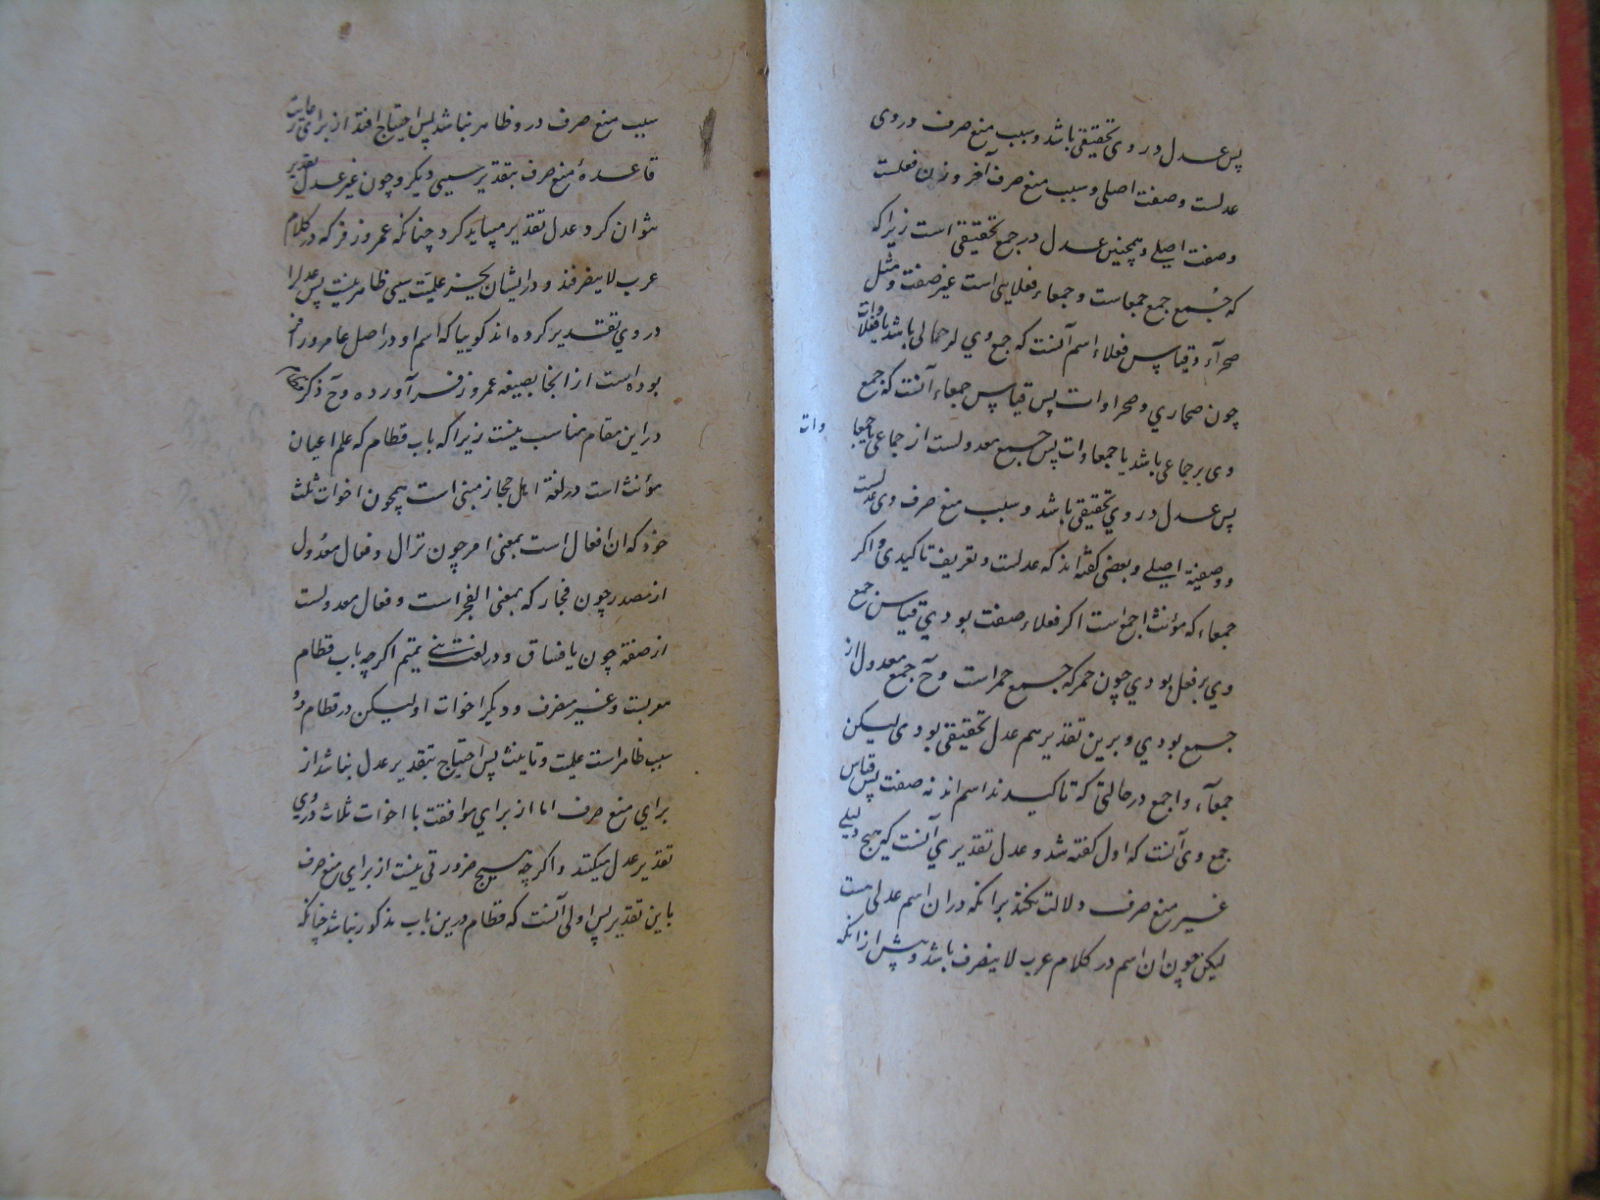 پس عدل در وی تحقیقی باشد و سبب منع صرف در وی
عدلست و صفت اصلی و سبب منع صرف آخر وزن فعلست
و صفت اصلی و همچنین عدل در جمع تحقیقی است زیرا که
که جُمع جمع جمعاست و جمعاء فعلایی است غیر صفت و مثل
صحرآء و قیاس فعلاء اسم آنست که جمع وی بر فعالی باشد یا فعلاوات
چون صحاری و صحراوات پس قیاس جمعاء آنست که جمع
وی بر جماعی باشد یا جمعاوات پس جمع معدولست از جماعی یا جمعا
وات
پس عدل در وی تحقیقی باشد و سبب منع صرف وی عدلست
و وصفیة اصلی و بعضی گفته اند که عدلست و تعریف تاکیدی و اگر
جمعاء که مؤنث اجمع است اگر فعلاء صفت بودی قیاس جمع
وی بر فعل بودی چون حمر که جمع حمراست و ح جمع معدول از
جمع بودی و برین تقدیر هم عدل تحقیقی بودی لیکن
جمعآء و اجمع در حالتی که تاکیدند اسم اند نه صفت پس قیاس
جمع وی آنست که اول گفته شد و عدل تقدیری آنست که هیچ دلیلی
غیر منع صرف دلالت نکند برانکه دران اسم عدلی هست
لیکن چون ان اسم در کلام عرب لا ینصرف باشد و پیش ازانکه
سبب منع صرف در و ظاهر نباشد پس احتیاج افتد از برای رعایت
قاعدهٔ منع صرف بتقدیر سببی دیگر و چون غیر عدل تقدیر
نتوان کرد عدل تقدیر میباید کرد چنانکه عمر و زفر که در کلام
عرب لا ینصرفند و در ایشان بجز علمیت سببی ظاهر نیست پس عدل را
در وی تقدیر کرده اند گوییا که اسم او در اصل عامر و زافر
بوده است از انجا بصیغه عمر و زفر آورده و ح ذکر قطام
در این مقام مناسب نیست زیرا که باب قطام که علم اعیان
مؤنث است در لغة اهل حجاز مبنی است همچون اخوات ثلث
خود که ان افعال است بمعنی امر چون نزال و فعال معدول
از مصدر چون فجار که بمعنی الفجر است و فعال معدولست
از صفة چون یا فساق و در لغت بنی تمیم اگرچه باب قطام
معربست و غیر منصرف و دیگر اخوات او لیکن در قطام دو
سبب ظاهر است علمیت و تانیث پس احتیاج بتقدیر عدل نباشد از
برای منع صرف اما از برای موافقت با اخوات ثلاث در وی
تقدیر عدل میکنند و اگرچه هیچ ضرورتی نیست از برای منع صرف
باین تقدیر پس اولی آنست که قطام درین باب مذکور نباشد چنانکه